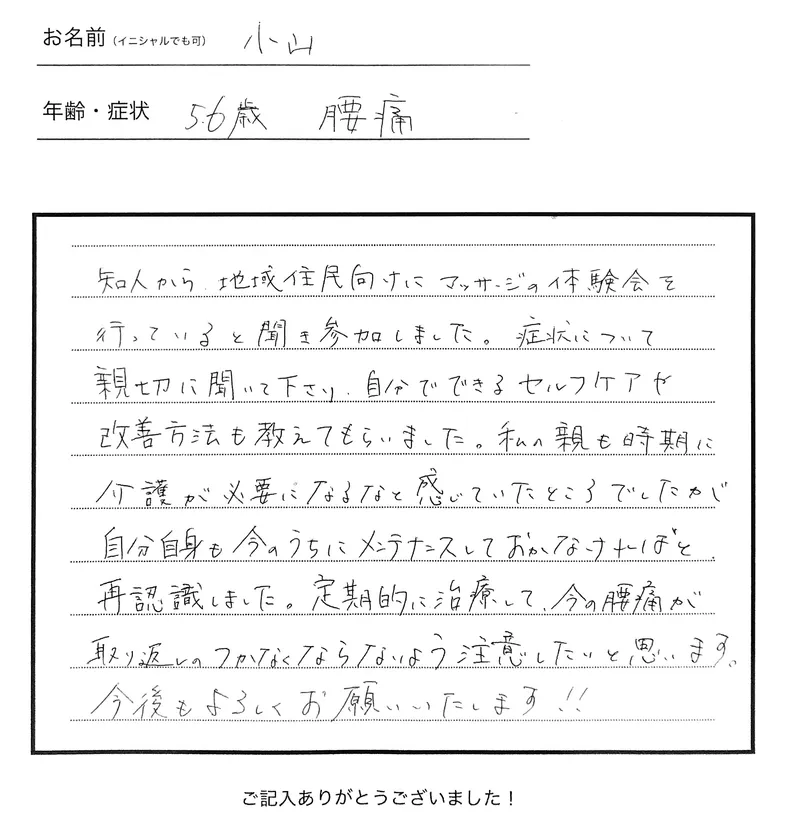 お名前（イニシャルでも可） 小山
年齢・症状 56歳 腰痛
知人から、地域住民向けにマッサージの体験会を
行っていると聞き参加しました。症状について
親切に聞いて下さり、自分でできるセルフケアや
改善方法も教えてもらいました。私の親も時期に
介護が必要になるなと感じていたところでしたが
自分自身も今のうちにメンテナンスしておかなければと、
再認識しました。定期的に治療して、今の腰痛が
取り返しのつかなくならないよう注意したいと思います。
今後もよろしくお願いいたします!!
ご記入ありがとうございました！